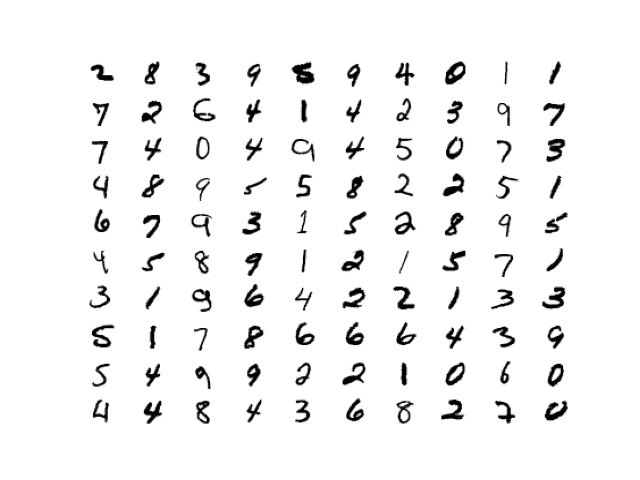 2 8 3 9 5 9 4 0 1 1
7 2 6 4 1 4 2 3 9 7
7 4 0 4 9 4 5 0 7 3
4 8 9 5 5 8 2 2 5 1
6 7 9 3 1 5 2 8 9 5
4 5 8 9 1 2 1 5 7 1
3 1 9 6 4 2 2 1 3 3
5 1 7 8 6 6 6 4 3 9
5 4 9 9 2 2 1 0 6 0
4 4 8 4 3 6 8 2 7 0